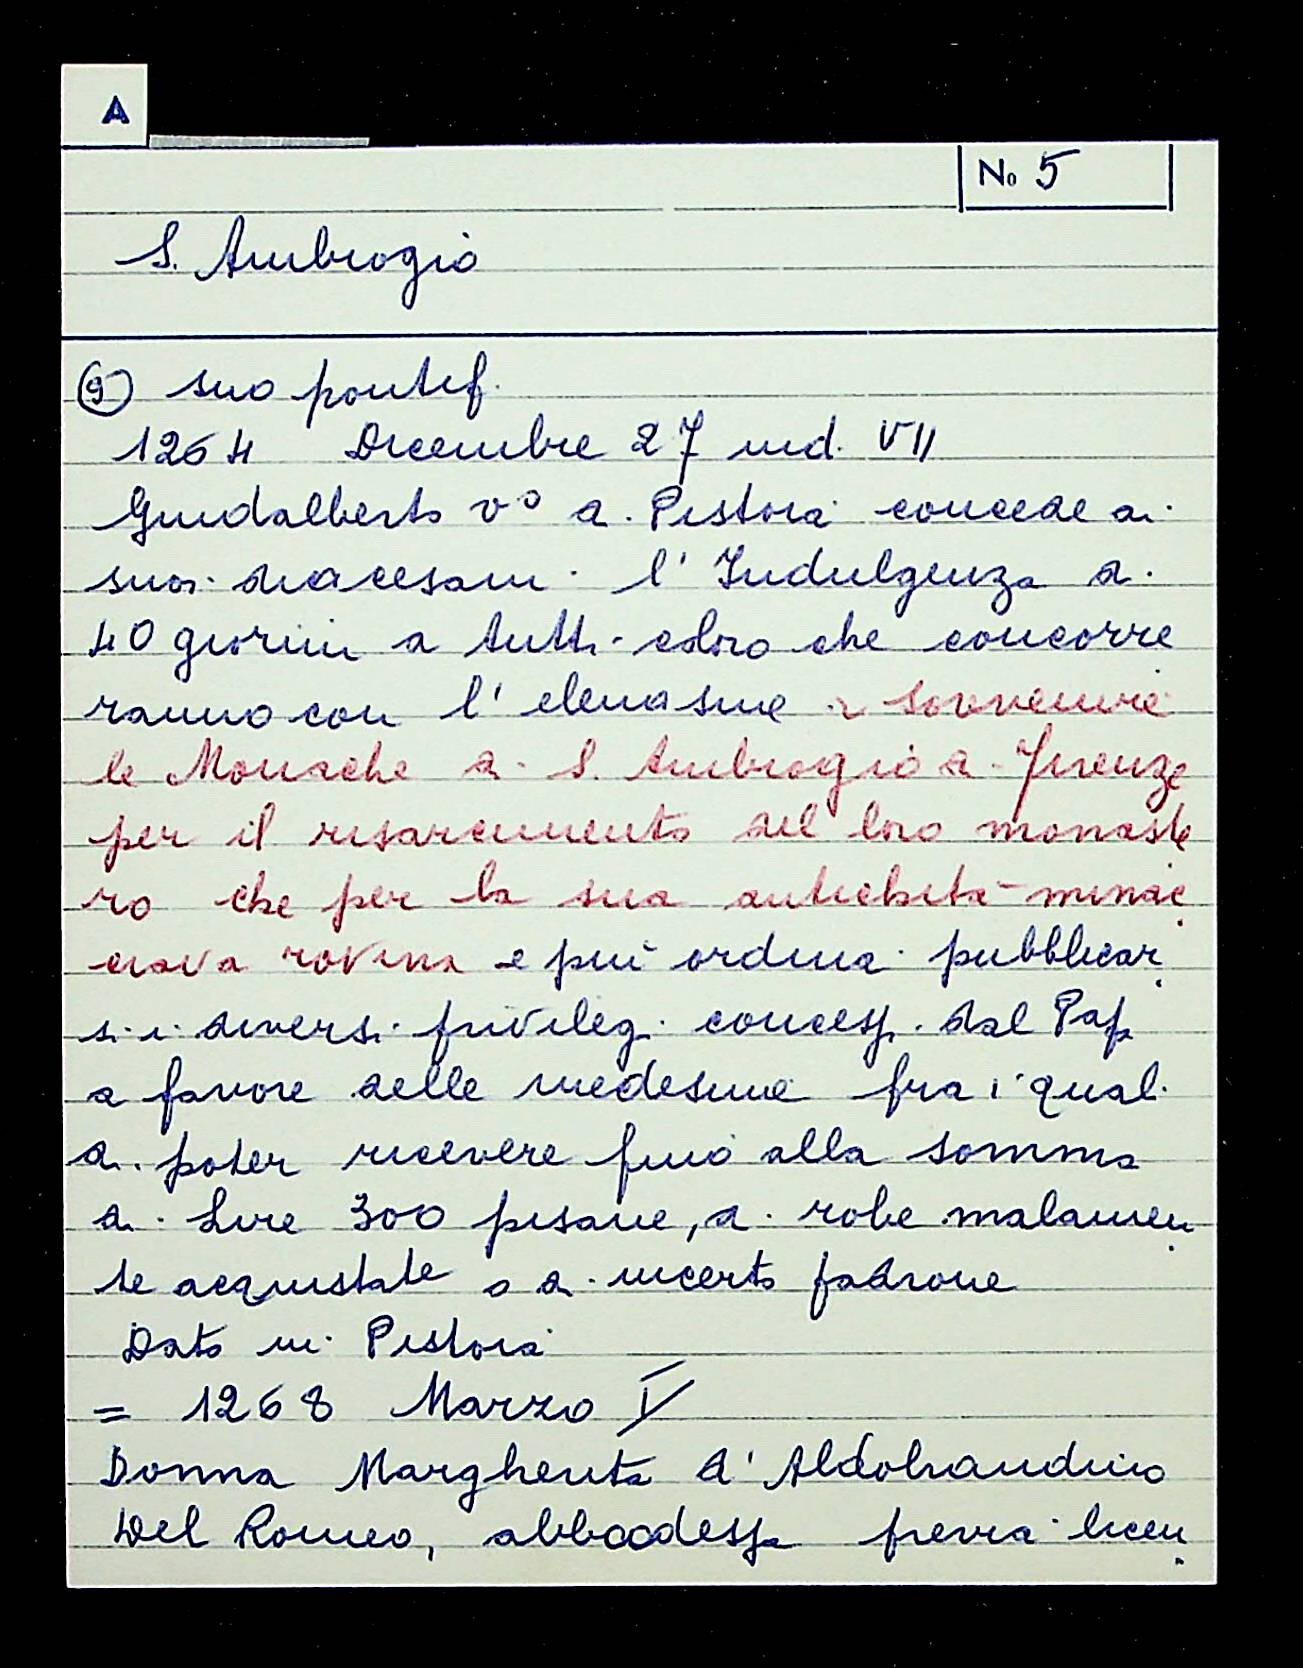 A
No 5
S. Ambrogio
9 suo pontif.
1264 Dicembre 27 ind. VII
Guidalberto vo di Pistoia concede ai
suoi diocesani l' Indulgenza di
40 giorni a tutti coloro che concorre
ranno con l' elemosine a sovvenire
le Monache di S. Ambrogio di Firenze
per il risarcimento del loro monaste
ro che per la sua antichità minac
ciava rovina e più ordina pubblicar
si i diversi privilegi concessi dal Pap
a favore delle medesime fra i quali
di poter ricevere fino alla somma
di Lire 300 pisane, di robe malamen
te acquistate o di incerto padrone
Dato in Pistoia
= 1268 Marzo V
Donna Margherita d' Aldobrandino
Del Romeo, abbadessa previa licen